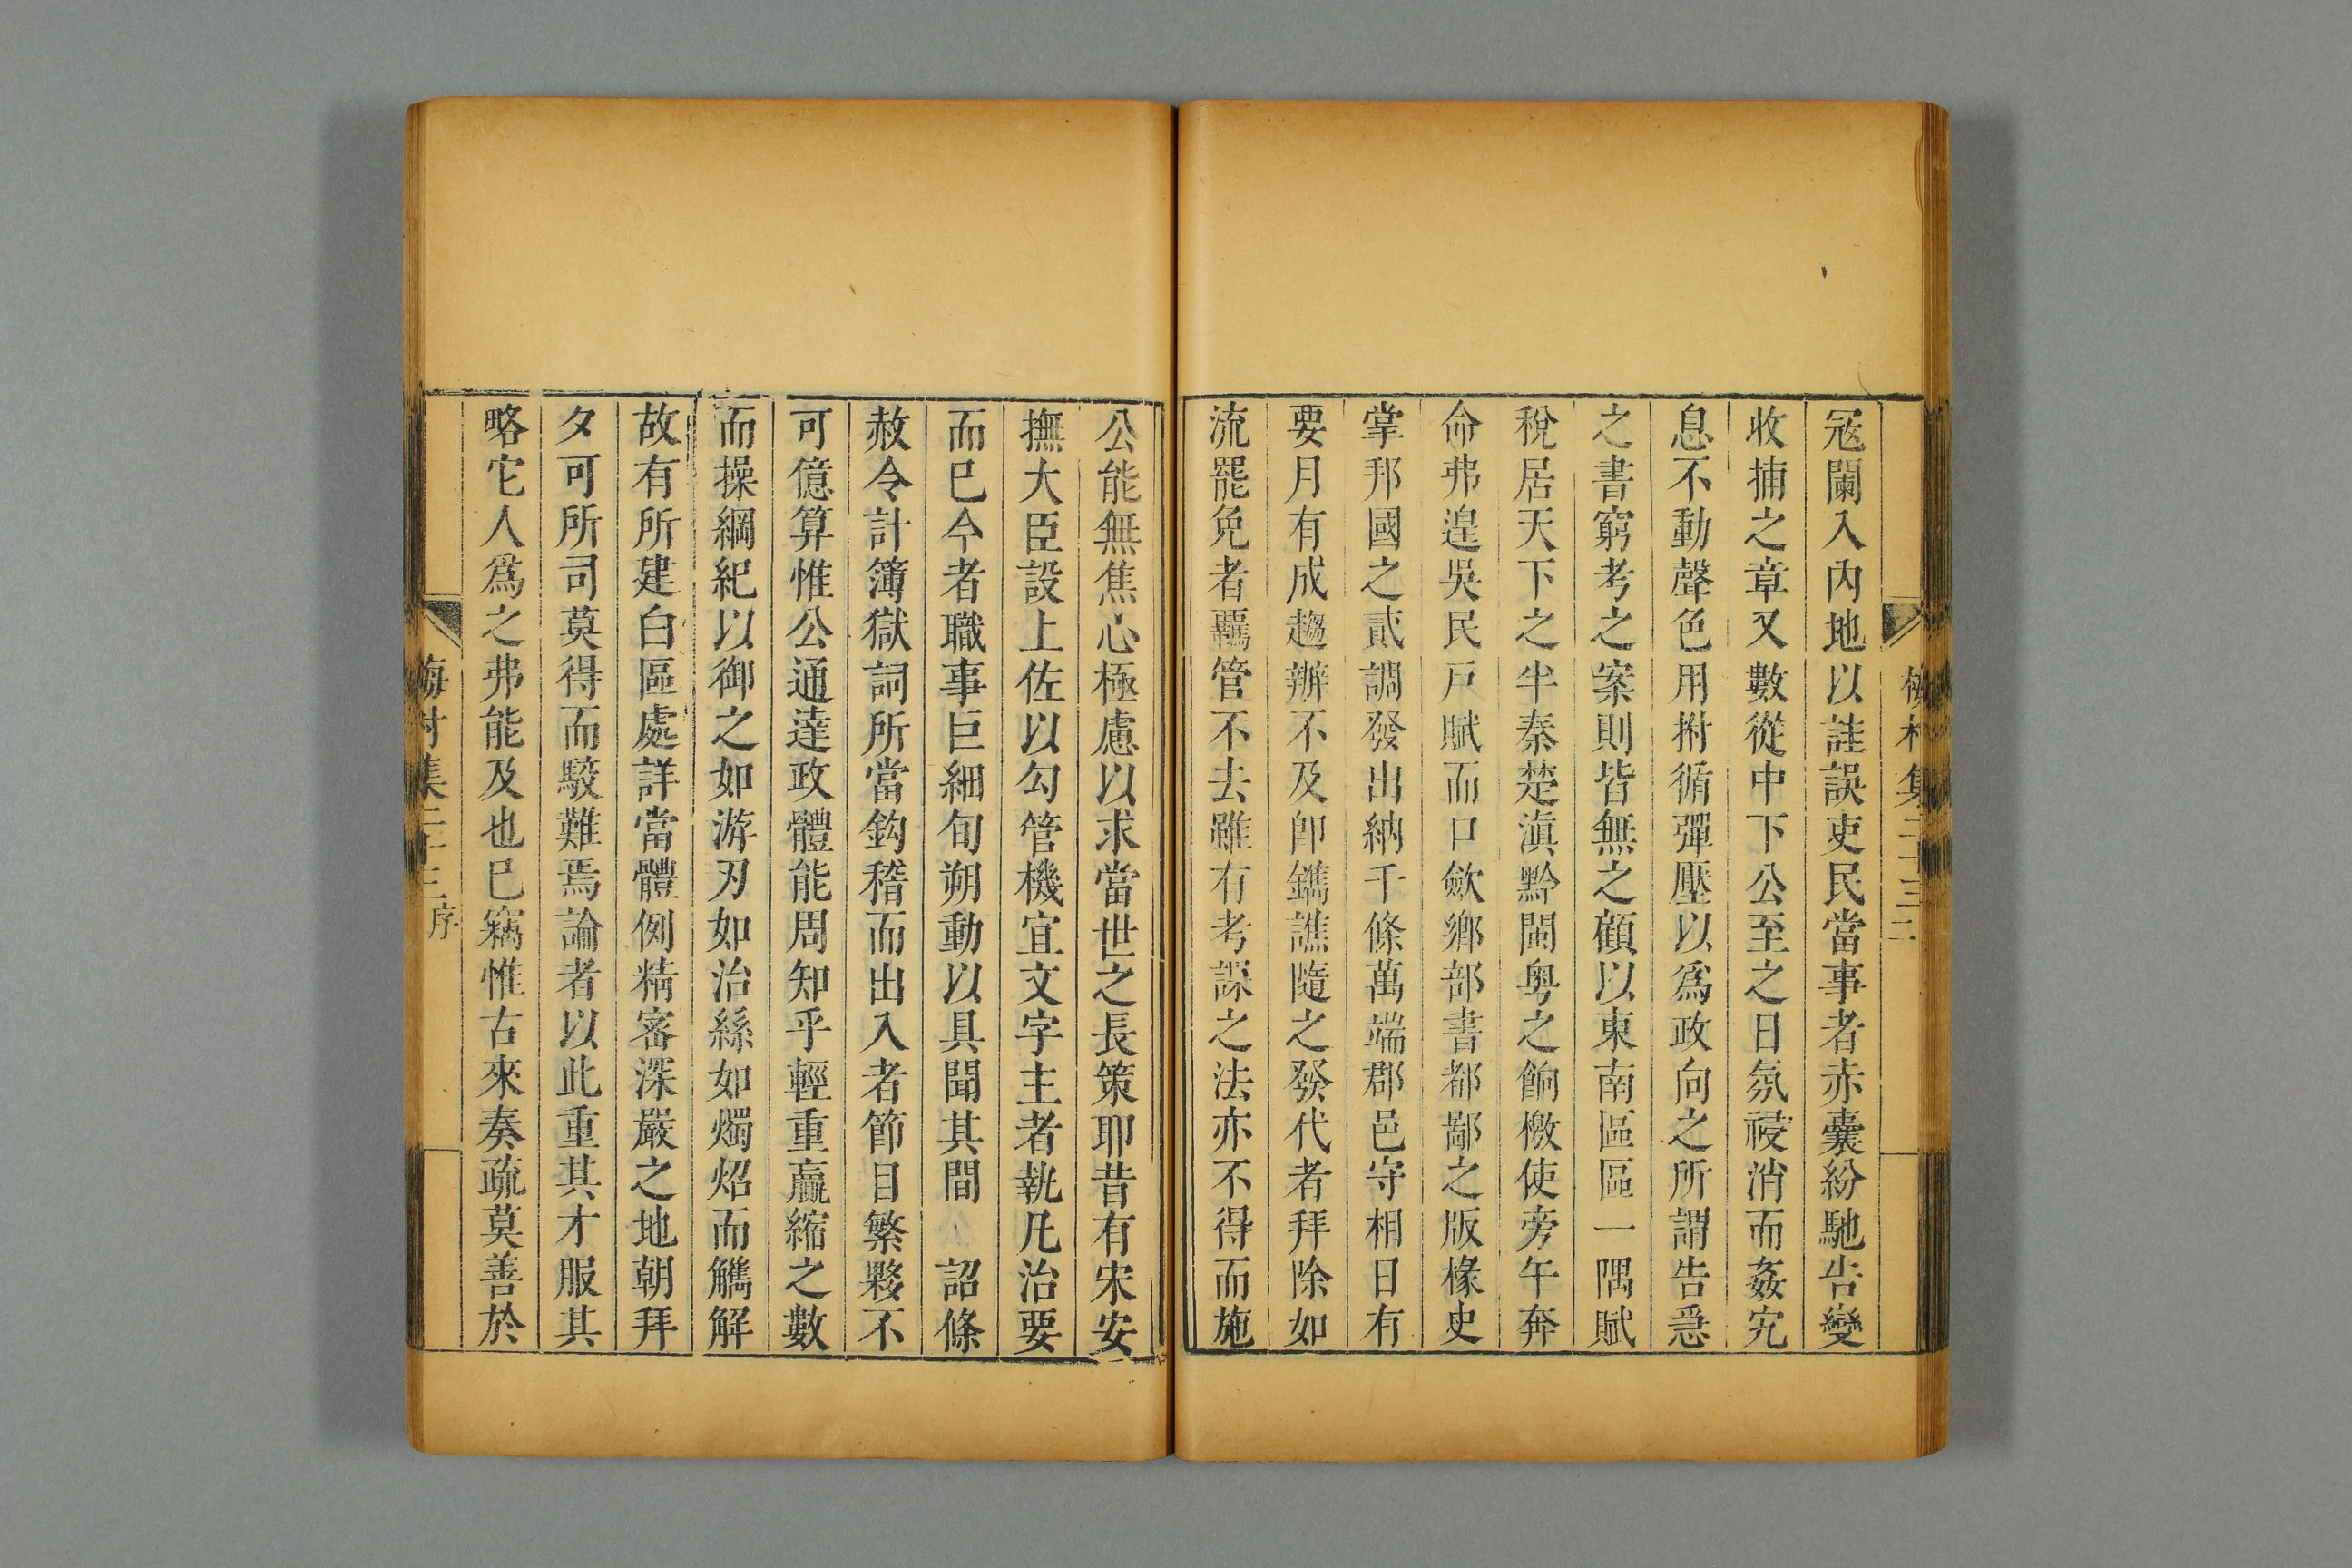 梅村集二十三 二
冦闌入內地以詿誤吏民當事者赤囊紛馳告變
收捕之章又數從中下公至之日氛祲消而姦宄
息不動聲色用拊循彈壓以爲政向之所謂告急
之書窮考之案則皆無之顧以東南區區一隅賦
稅居天下之半秦楚滇黔閩粤之餉檄使旁午奔
命弗遑吳民戸賦而口斂鄉部書都鄙之版椽史
掌邦國之貳調發出納千條萬端郡邑守相日有
要月有成趨辦不及卽鐫譙隨之發代者拜除如
流罷免者羈管不去雖有考課之法亦不得而施
公能無焦心極慮以求當世之長策耶昔有宋安
撫大臣設上佐以勾管機宜文字主者執凡治要
而已今者職事巨細旬朔動以具聞其間 詔條
赦令計簿獄詞所當鈎稽而出入者節目繁夥不
可億算惟公通達政體能周知乎輕重贏縮之數
而操綱紀以御之如游刃如治絲如燭炤而觿解
故有所建白區處詳當體例精審深嚴之地朝拜
夕可所司莫得而駮難焉論者以此重其才服其
略它人爲之弗能及也已竊惟古來奏疏莫善於
梅村集二十三 序